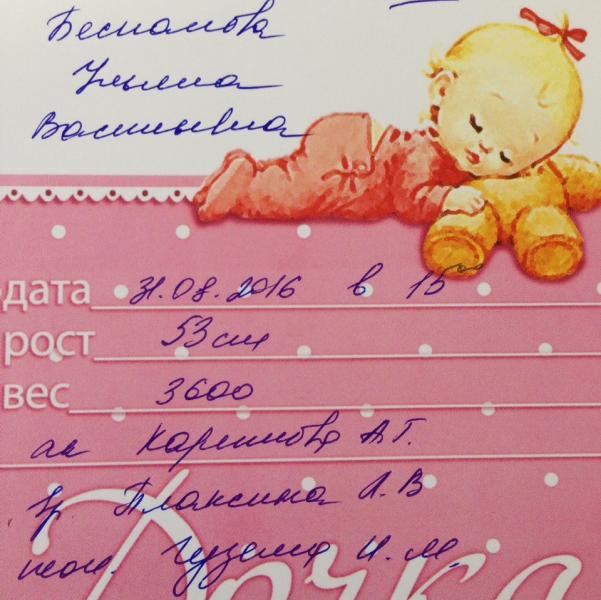 Беспалова
Ульяна
Васильевна
дата 31.08.2016 в 15⁰⁰
рост 53 см
вес 3600
ак Каримова А.Г.
вр Плаксина Л.В
пол. И.М.
Дочка